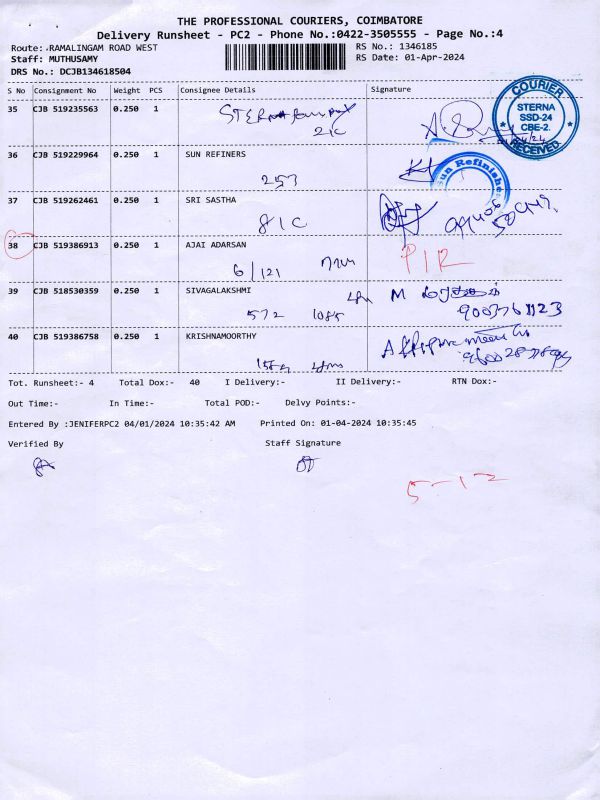 THE PROFESSIONAL COURIERS, COIMBATORE
Delivery Runsheet - PC2 - Phone No.:0422-3505555 - Page No.:4
Route: RAMALINGAM ROAD WEST
RS No.: 1346185
Staff: MUTHUSAMY
RS Date: 01-Apr-2024
DRS No.: DCJB134618504
S No Consignment No Weight PCS Consignee Details Signature
35 CJB 519235563 0.250 1
21C
COURIER
STERNA
SSD-24
CBE-2.
RECEIVED
36 CJB 519229964 0.250 1 SUN REFINERS
253
Sun Refiners
37 CJB 519262461 0.250 1 SRI SASTHA
81C
38 CJB 519386913 0.250 1 AJAI ADARSAN
P/R
6/121
39 CJB 518530359 0.250 1 SIVAGALAKSHMI
572 1085
M
40 CJB 519386758 0.250 1 KRISHNAMOORTHY
Tot. Runsheet:- 4 Total Dox:- 40 I Delivery:- II Delivery:- RTN Dox:-
Out Time:- In Time:- Total POD:- Delvy Points:-
Entered By :JENIFERPC2 04/01/2024 10:35:42 AM Printed On: 01-04-2024 10:35:45
Verified By Staff Signature
5-12